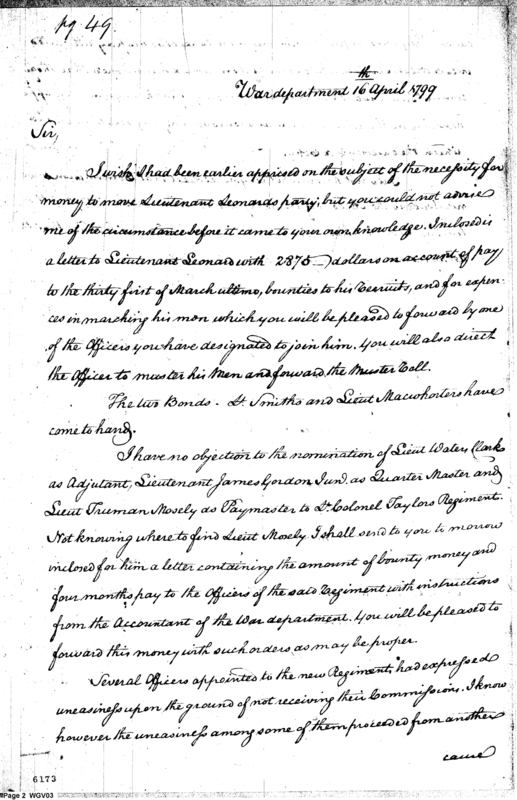 pg 49.
War department 16th April 1799
Sir,
I wish I had been earlier apprised on the subject of the necessity for
money to move Lieutenant Leonards party, but you could not advise
me of the circumstance before it came to your own knowledge. Inclosed is
a letter to Lieutenant Leonard with 2375 dollars on account of pay
to the thirty first of March ultimo, bounties to his recruits, and for expen-
ces in marching his men which you will be pleased to forward by one
of the Officers you have designated to join him. You will also direct
the Officer to muster his Men and forward the Muster Roll.
The two Bonds - Lt. Smiths and Lieut Macwhorters have
come to hand.
I have no objection to the nomination of Lieut Waters Clark
as Adjutant, Lieutenant James Gordon Junr. as Quarter Master and
Lieut Truman Mosely as Paymaster to Lt. Colonel Taylors Regiment.
Not knowing where to find Lieut Mosely I shall send to you to morrow
inclosed for him a letter containing the amount of bounty money and
four months pay to the Officers of the said Regiment with instructions
from the Accountant of the War department. You will be pleased to
forward this money with such orders as may be proper.
Several Officers appointed to the new Regiments had expressed
uneasiness upon the ground of not receiving their Commissions. I know
however the uneasiness among some of them proceeded from another
cause
6173
Page 2 WGV03